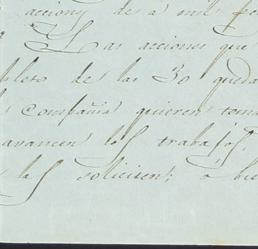 acciones de a mil pe
Las acciones que
pleto de las 30 queda
compañia quieren toma
avancen los trabajos,
las soliciten; ó bie